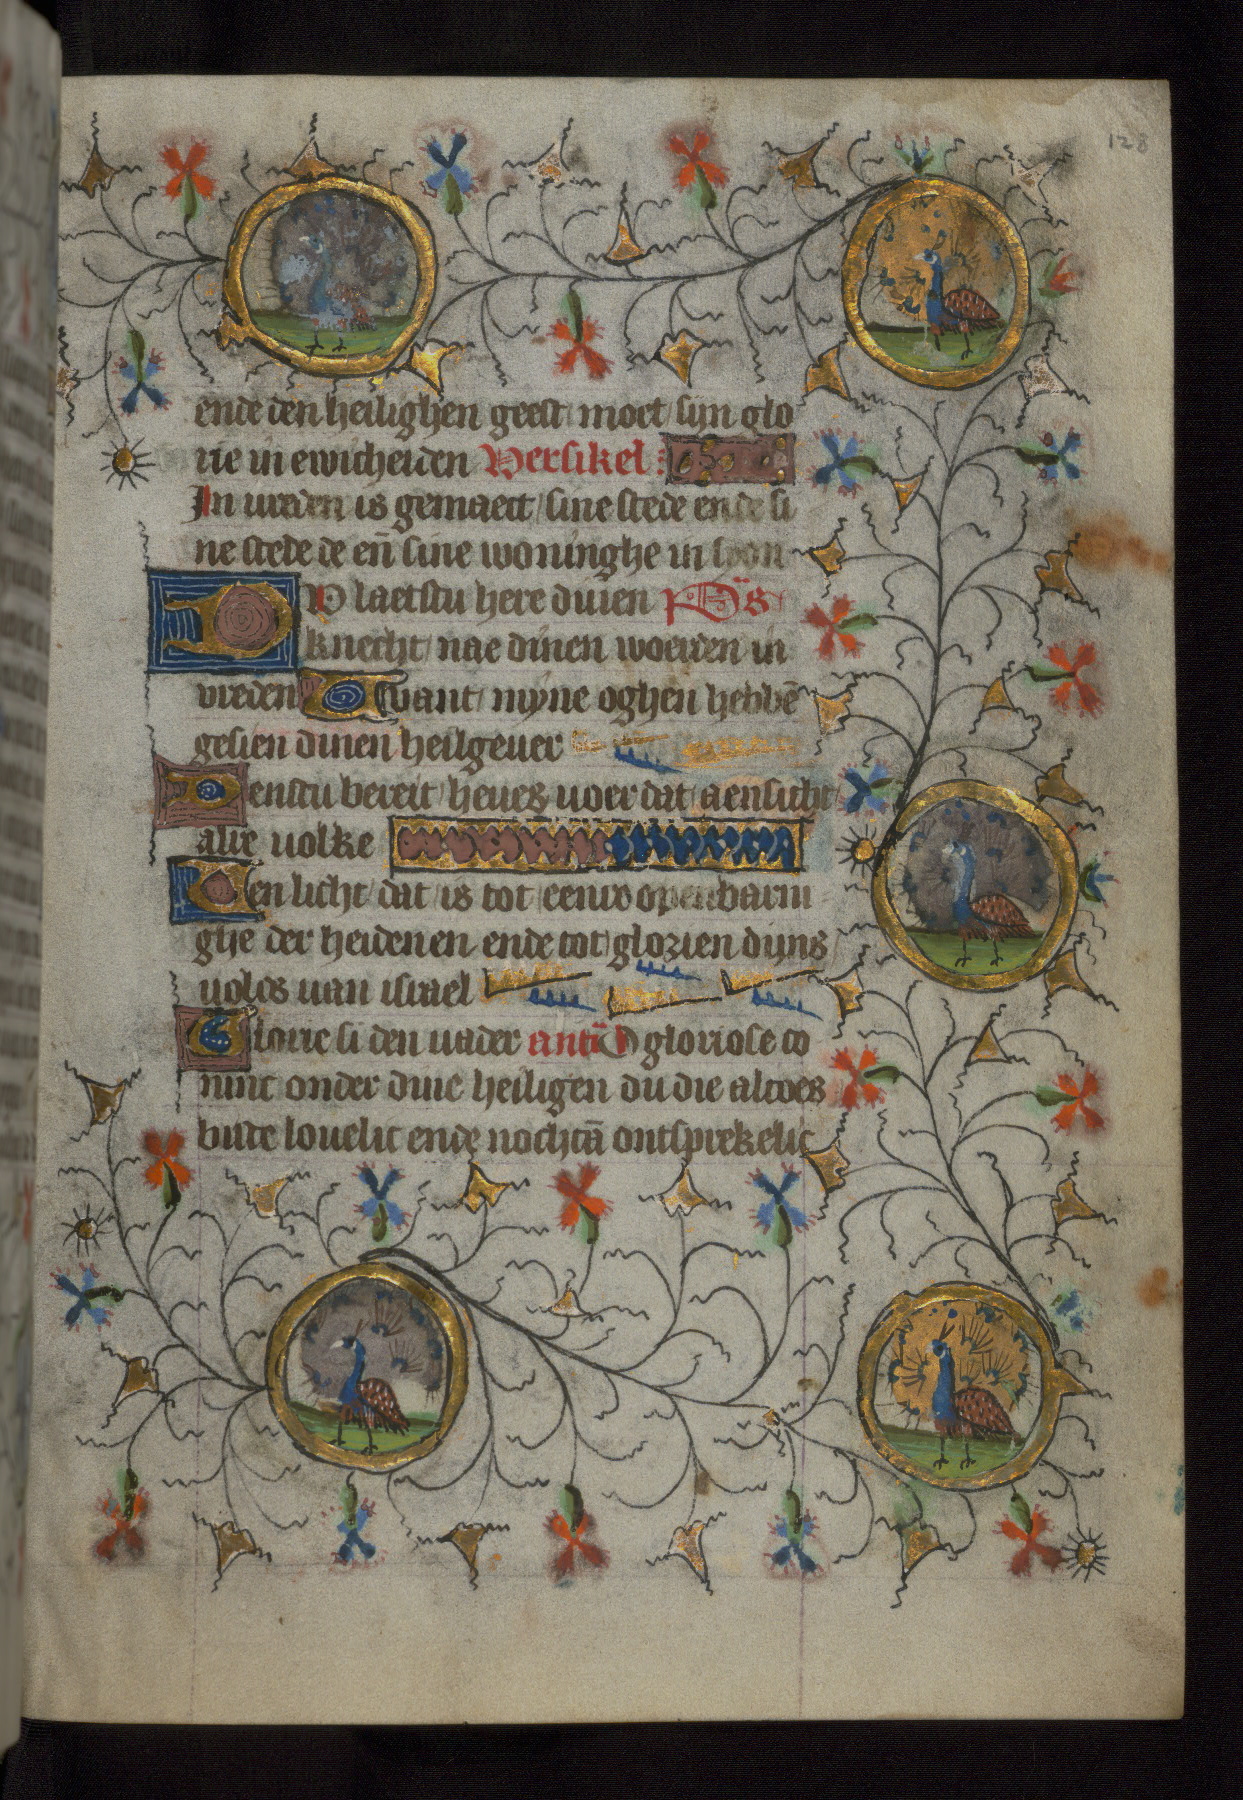 128
ende den heilighen geest moet sijn glo
rie in ewicheiden Versikel
In vreden is gemaect sine stede ende si
ne stede de en̄ sine woninghe in syon
Nv laetstu here duien p̄s
knecht nae dinen woerden in
vreden Want myne oghen hebbē
gesien dinen heilgeuer
Denstu bereit heues voer dat aensicht
alre volke
Een licht dat is tot eenre openbarin
ghe der heidenen ende tot glorien dijns
volcs van israel
Glorie si den vader antiā O gloriose co
ninc onder diue heiligen du die altoes
biste louelic ende nochtā ontsprekelic